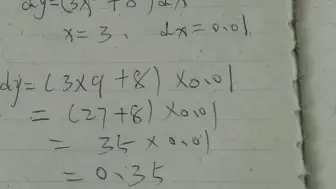 dy=(3x²+8)dx
x=3, dx=0.01
dy=(3x9+8)x0.01
=(27+8)x0.01
= 35 x0.01
= 0.35